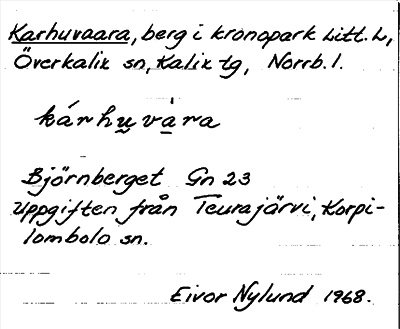 Karhuvaara, berg i kronopark Litt. L,
Överkalix sn, Kalix tg, Norrb. l.
kárhu̬vȧ̱ra
Björnberget Gn 23
Uppgiften från Teurajärvi, Korpi-
lombolo sn.
Eivor Nylund 1968.